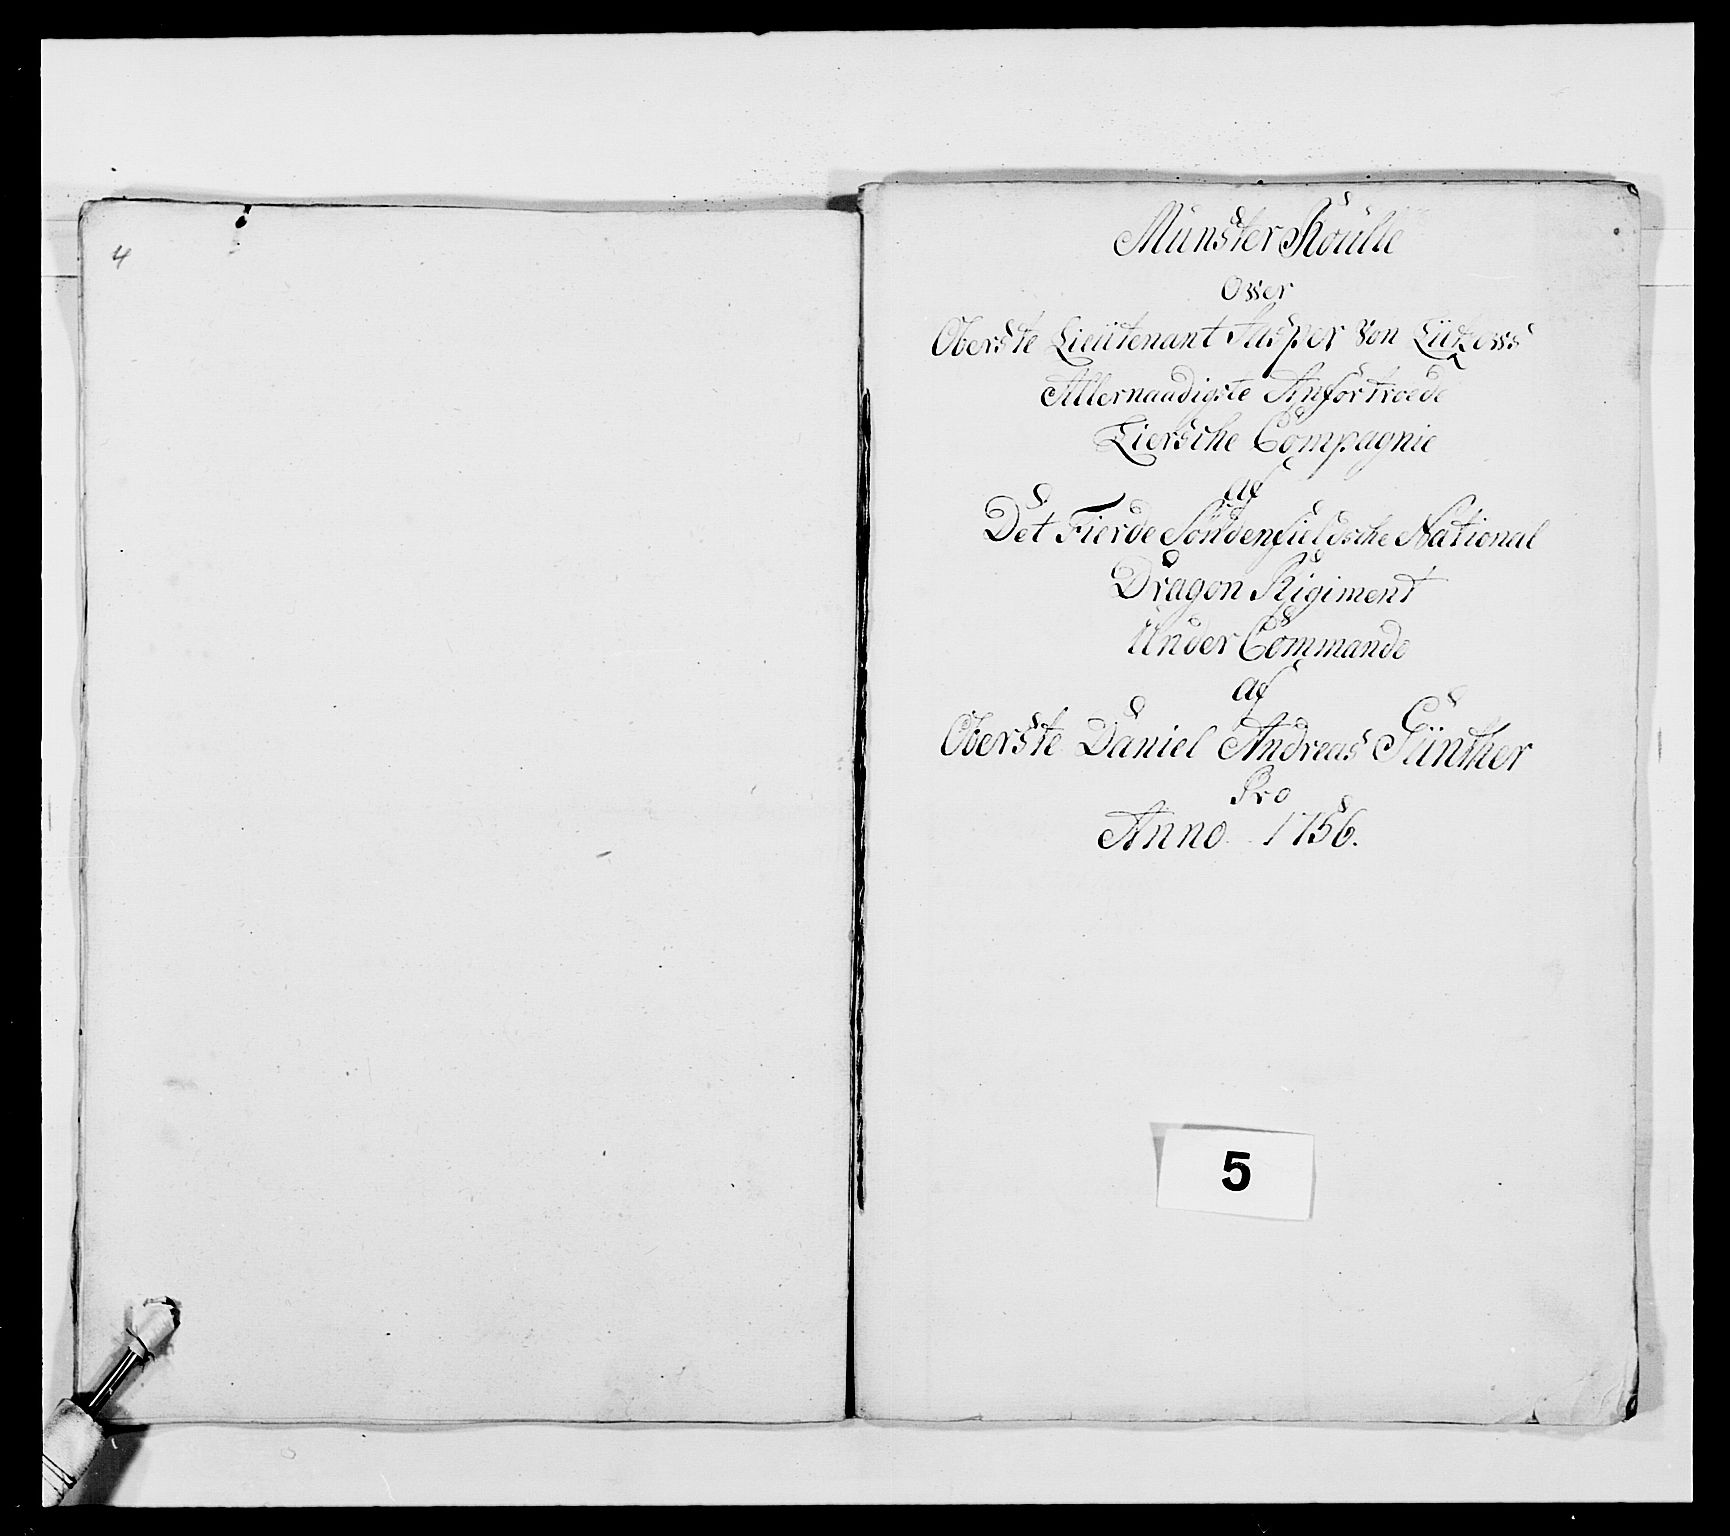 4
Münster Roulle
over
Oberste Lieütenant Jasper von Lützows
Allernaadigste Anfortroede
Liersche Compagnie
af
Det Fierde Söndenfieldsche National
Dragon Regiment
Under Commando
af
Oberste Daniel Andreas Günther
Pro
Anno 1756.
5